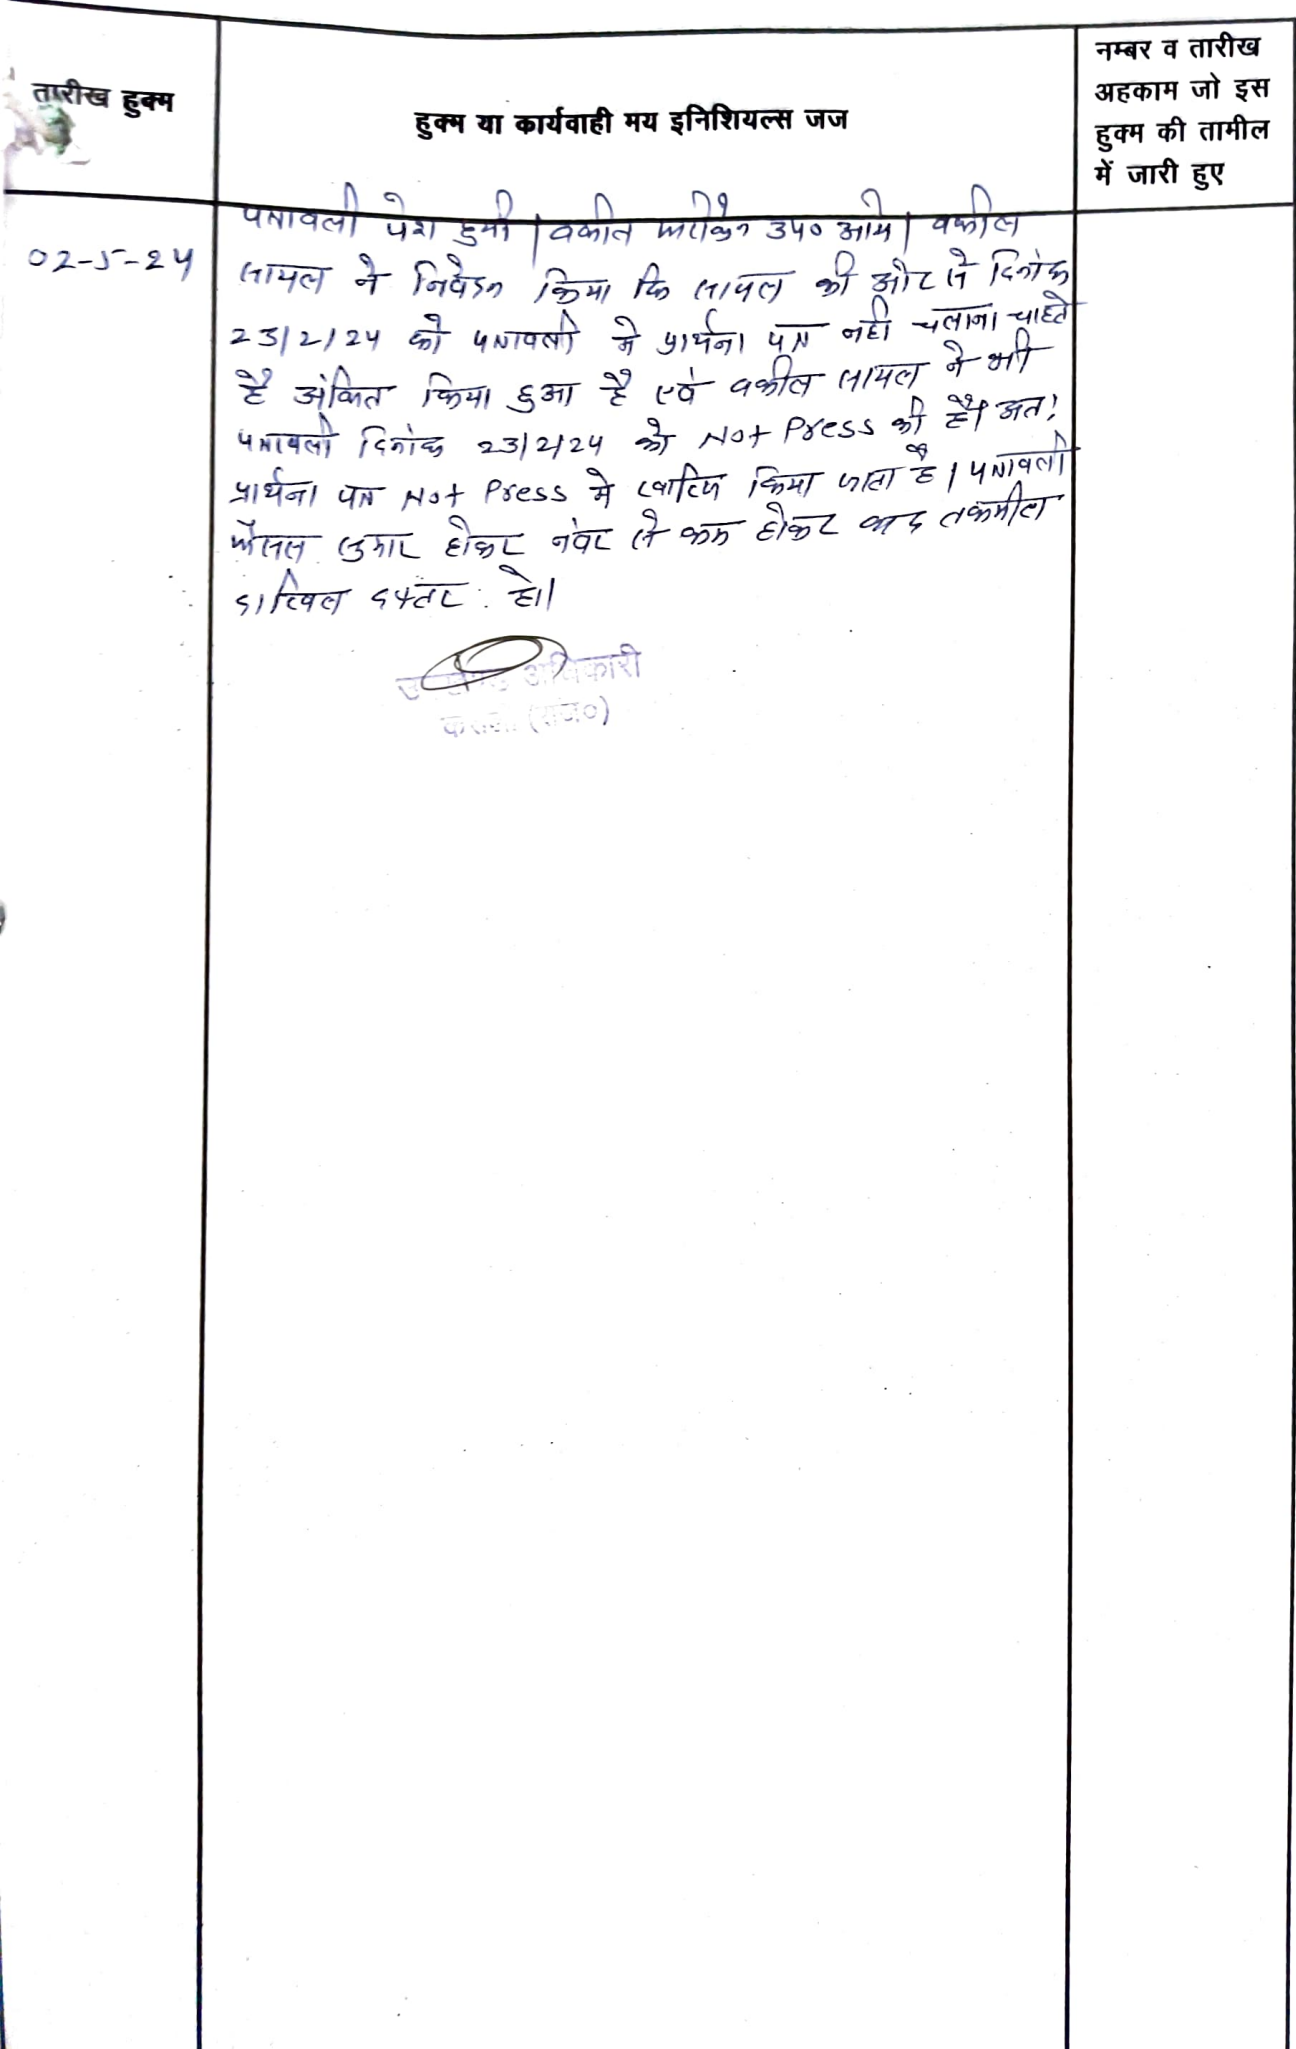 तारीख हुक्म
हुक्म या कार्यवाही मय इनिशियल्स जज
नम्बर व तारीख
अहकाम जो इस
हुक्म की तामील
में जारी हुए
02-5-24
पत्रावली पेश हुयी। वकील फरीकैन उप० आये। वकील
सायल ने निवेदन किया कि सायल की ओर से दिनांक
23/2/24 को पत्रावली मे प्रार्थना पत्र नही चलाना चाहते
है अंकित किया हुआ है एवं वकील सायल ने भी
पत्रावली दिनांक 23/2/24 को Not Press की है। अत:
प्रार्थना पत्र Not Press मे खारिज किया जाता है। पत्रावली
फैसल सुमार होकर नंबर से कम होकर बाद तकमील
दाखिल दफ्तर हो।
उपखण्ड अधिकारी
(राज०)